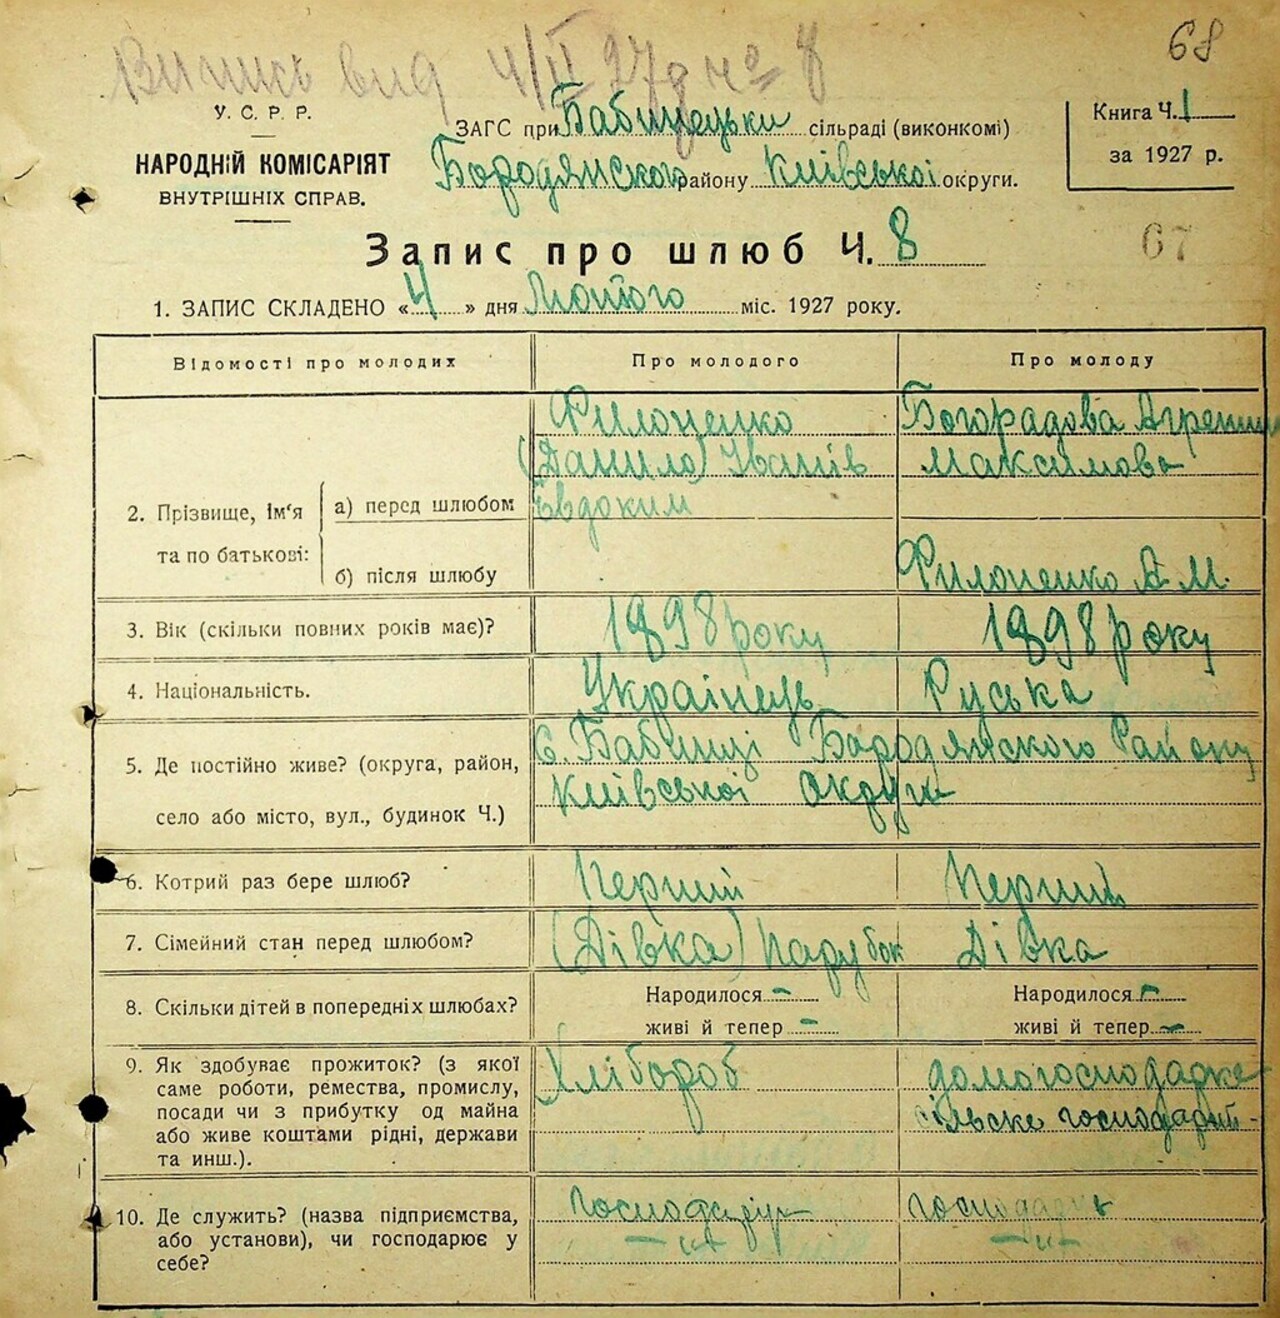 68
Випись вид 4/II 27 д № 8
У. С. Р. Р.
НАРОДНІЙ КОМІСАРІЯТ
ВНУТРІШНІХ СПРАВ.
ЗАГС при Бабинецьки сільраді (виконкомі)
Бородянского району Київської округи.
Книга Ч. 1
за 1927 р.
Запис про шлюб Ч. 8
67
1. ЗАПИС СКЛАДЕНО « 4 » дня Лютого міс. 1927 року.
Відомості про молодих
Про молодого
Про молоду
2. Прізвище, ім'я та по батькові:
а) перед шлюбом
Филоненко
(Данило) Іванів
Евдоким
Богорадова
Максимова
б) після шлюбу
Филоненко А. М.
3. Вік (скільки повних років має)?
1898 року
1898 року
4. Національність.
Українець
Руська
5. Де постійно живе? (округа, район,
село або місто, вул., будинок Ч.)
с. Бабинці Бородянского Району
Київської округи
6. Котрий раз бере шлюб?
Перший
Перший
7. Сімейний стан перед шлюбом?
(Дівка) Парубок
Дівка
8. Скільки дітей в попередніх шлюбах?
Народилося -
живі й тепер -
Народилося -
живі й тепер -
9. Як здобуває прожиток? (з якої
саме роботи, ремества, промислу,
посади чи з прибутку од майна
або живе коштами рідні, держави
та инш.).
Хлібороб
домогосподарке
сільске
10. Де служить? (назва підприємства,
або установи), чи господарює у
себе?
господарює
— " —
— " —